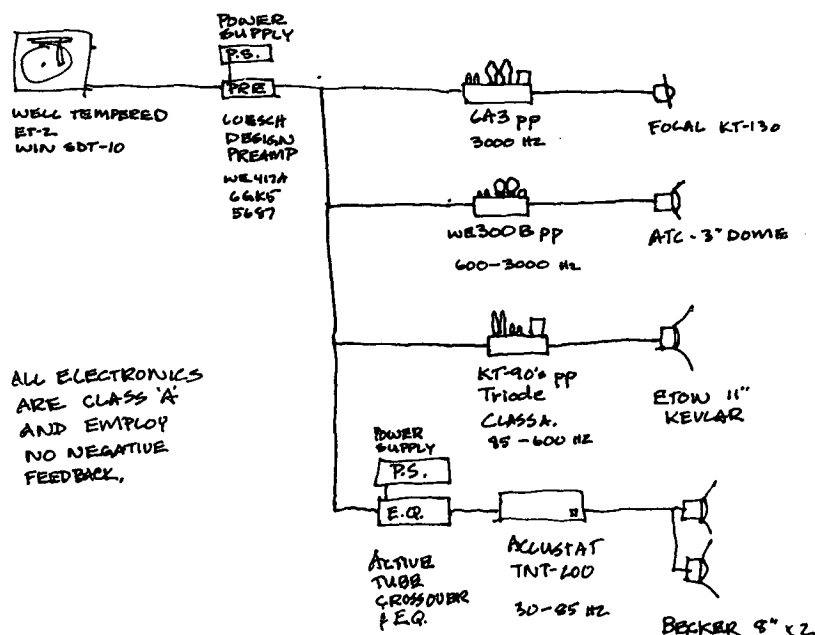 POWER
SUPPLY
P.S.
PRE
WELL TEMPERED
ET-2
WIN SDT-10
LOESCH
DESIGN
PREAMP
WE417A
6GK5
5687
6A3 PP
3000 HZ
FOCAL KT-130
WE300B PP
600-3000 HZ
ATC-3" DOME
KT-90's PP
Triode
CLASS A.
85-600 HZ
ETON 11"
KEVLAR
ALL ELECTRONICS
ARE CLASS 'A'
AND EMPLOY
NO NEGATIVE
FEEDBACK.
POWER
SUPPLY
P.S.
E.Q.
ACTIVE
TUBE
CROSSOVER
& E.Q.
ACCUSTAT
TNT-200
30-85 HZ
BECKER 8" x 2